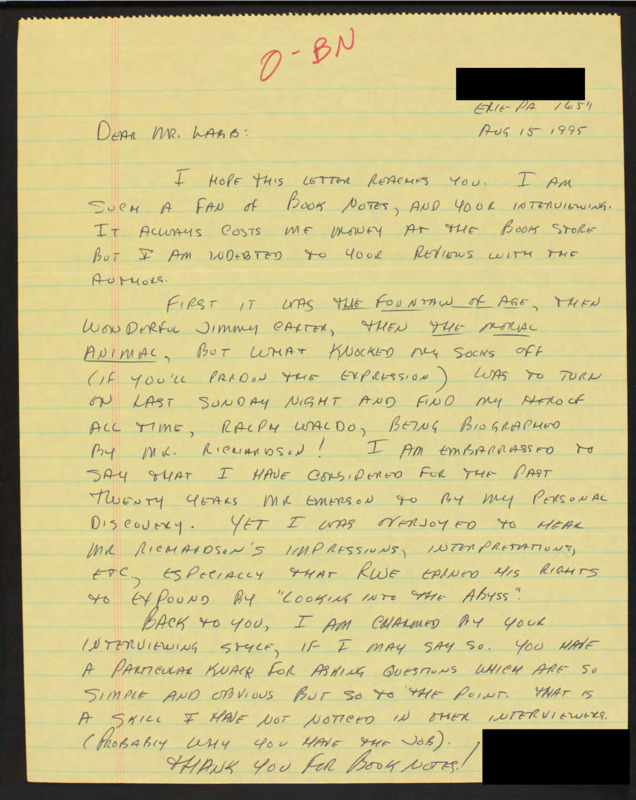 O-BN
ERIE PA 16511
AUG 15 1995
DEAR MR. LAMB:
I HOPE THIS LETTER REACHES YOU. I AM
SUCH A FAN OF BOOK NOTES, AND YOUR INTERVIEWING.
IT ALWAYS COSTS ME MONEY AT THE BOOK STORE
BUT I AM INDEBTED TO YOUR REVIEWS WITH THE
AUTHORS.
FIRST IT WAS THE FOUNTAIN OF AGE, THEN
WONDERFUL JIMMY CARTER, THEN THE MORAL
ANIMAL, BUT WHAT KNOCKED MY SOCKS OFF
(IF YOU'LL PARDON THE EXPRESSION) WAS TO TURN
ON LAST SUNDAY NIGHT AND FIND MY HERO OF
ALL TIME, RALPH WALDO, BEING BIOGRAPHED
BY MR. RICHARDSON! I AM EMBARRASSED TO
SAY THAT I HAVE CONSIDERED FOR THE PAST
TWENTY YEARS MR EMERSON TO BY MY PERSONAL
DISCOVERY. YET I WAS OVERJOYED TO HEAR
MR RICHARDSON'S IMPRESSIONS, INTERPRETATIONS,
ETC, ESPECIALLY THAT RWE EARNED HIS RIGHTS
TO EXPOUND BY "LOOKING INTO THE ABYSS".
BACK TO YOU, I AM CHARMED BY YOUR
INTERVIEWING STYLE, IF I MAY SAY SO. YOU HAVE
A PARTICULAR KNACK FOR ASKING QUESTIONS WHICH ARE SO
SIMPLE AND OBVIOUS BUT SO TO THE POINT. THAT IS
A SKILL I HAVE NOT NOTICED IN OTHER INTERVIEWERS.
(PROBABLY WHY YOU HAVE THE JOB).
THANK YOU FOR BOOK NOTES!